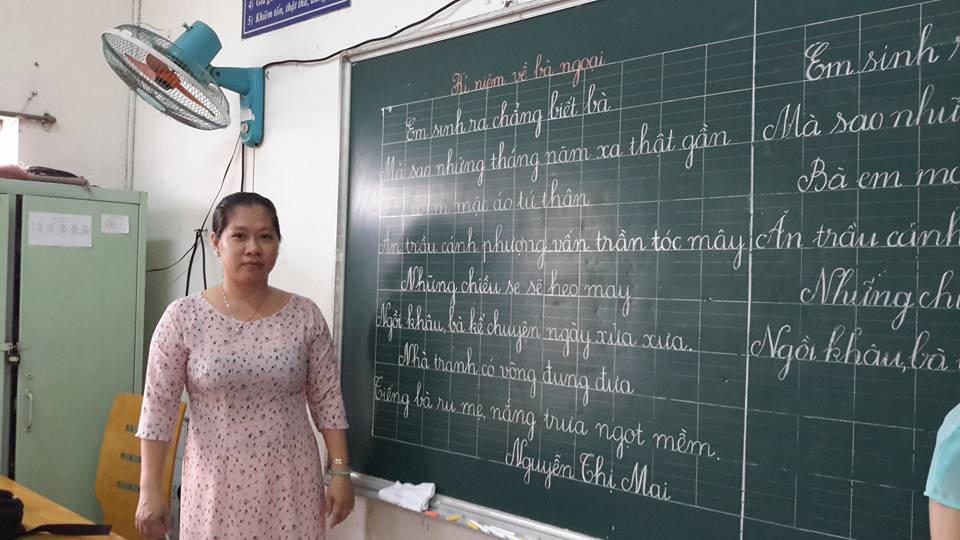 5) Khiêm tốn, thật thà,
Kỉ niệm về bà ngoại
Em sinh ra chẳng biết bà
Mà sao những tháng năm xa thật gần
em mặc áo tứ thân
Ăn trầu cánh phượng vấn trần tóc mây
Những chiều se sẽ heo may
Ngồi khâu, bà kể chuyện ngày xửa xưa.
Nhà tranh có võng đung đưa
Tiếng bà ru mẹ, nắng trưa ngọt mềm.
Nguyễn Thị Mai
Em sinh
Mà sao
Bà em
Ăn trầu cánh
Những
Ngồi khâu, bà